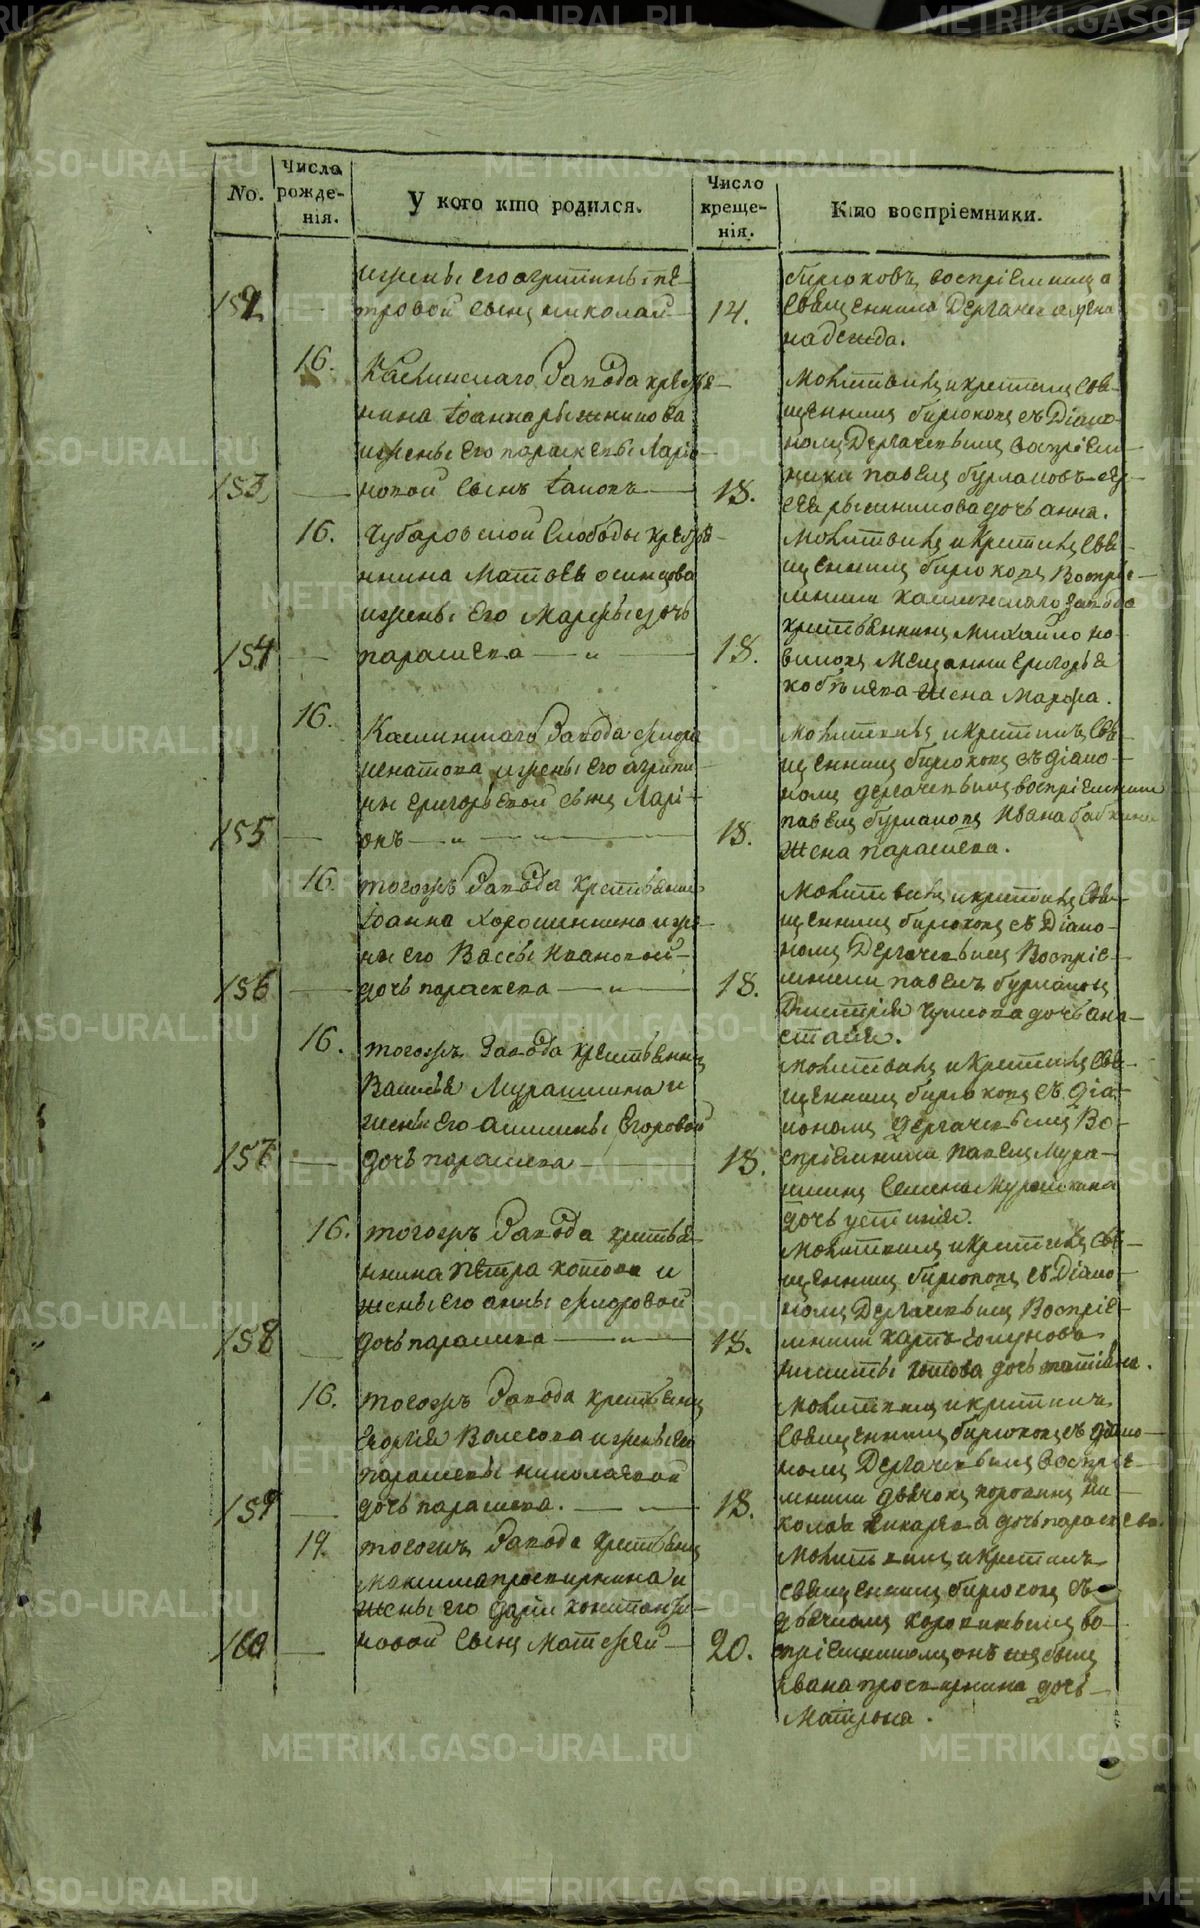 No.
Число рожде-нія.
У кого кто родился.
Число креще-нія.
Кто воспріемники.
и жены его агрипины пе-
152 — тровой сынъ николай — 14.
бирюковъ, воспріемница
священника Дергачева жена
надежда.
16. Каслинскаго Завода крестья-
нина Iоанна рыжникова
и жены его параскевы Ларіо-
153 — новой сынъ Iаковъ — 18.
Молитвилъ и крестилъ свя-
щенникъ бирюковъ съ Діако-
номъ Дергачевымъ воспріем-
ники павелъ бурлаковъ
дочь анна.
16. Чубаровской слободы крестья-
нина Матвея осинцова
и жены его Марфы дочь
154 — параскева — „ — 18.
Молитвилъ и крестилъ свя-
щенникъ бирюковъ воспріе-
мники каслинскаго завода
крестьянинъ Михайло но-
виковъ Григорья
жена Марфа.
16. Каслинскаго Завода
игнатова и жены его агрипи-
ны григорьевой сынъ Ларі-
155 — онъ — „ — 18.
Молитвилъ и крестилъ свя-
щенникъ бирюковъ съ діако-
номъ дергачевымъ воспріемники
павелъ бурлаковъ Ивана бабкина
жена параскева.
16. тогожъ Завода крестьянина
Iоанна Хорошенина и же-
ны его Вассы Ивановой
156 — дочь параскева — „ — 18.
Молитвилъ и крестилъ свя-
щенникъ бирюковъ съ Діако-
номъ Дергачевымъ Воспріе-
мники павелъ бурлаковъ
Дмитрія дочь ана-
стасія.
16. тогожъ Завода крестьянина
Василья Мурашкина и
жены его акилины Егоровой
157 — дочь параскева — 18.
Молитвилъ и крестилъ свя-
щенникъ бирюковъ съ діа-
кономъ дергачевымъ Во-
спріемники павелъ Мура-
шкинъ Семена Мурашкина
дочь устинія.
16. тогожъ Завода крестья-
нина петра котова и
жены его анны фидоровой
158 — дочь параскева — „ — 18.
Молитвилъ и крестилъ свя-
щенникъ бирюковъ съ Діако-
номъ Дергачевымъ Воспріе-
мники карпъ
никиты котова дочь татіяна.
16. тогожъ Завода крестьянина
Георгія Волкова и жены его
параскевы николаевой
159 — дочь параскева. — 18.
Молитвилъ и крестилъ
священникъ бирюковъ съ діако-
номъ Дергачевымъ воспріе-
мники дьячокъ коровинъ ни-
колая дочь параскева.
19. тогожъ Завода крестьянина
Максима проскурнина и
жены его дарьи константи-
160 — новой сынъ Матфей — 20.
Молитвилъ и крестилъ
священникъ бирюковъ съ
дьячкомъ коровинымъ во-
спріемникомъ онъ же былъ
Ивана проскурнина дочь
Матрона.